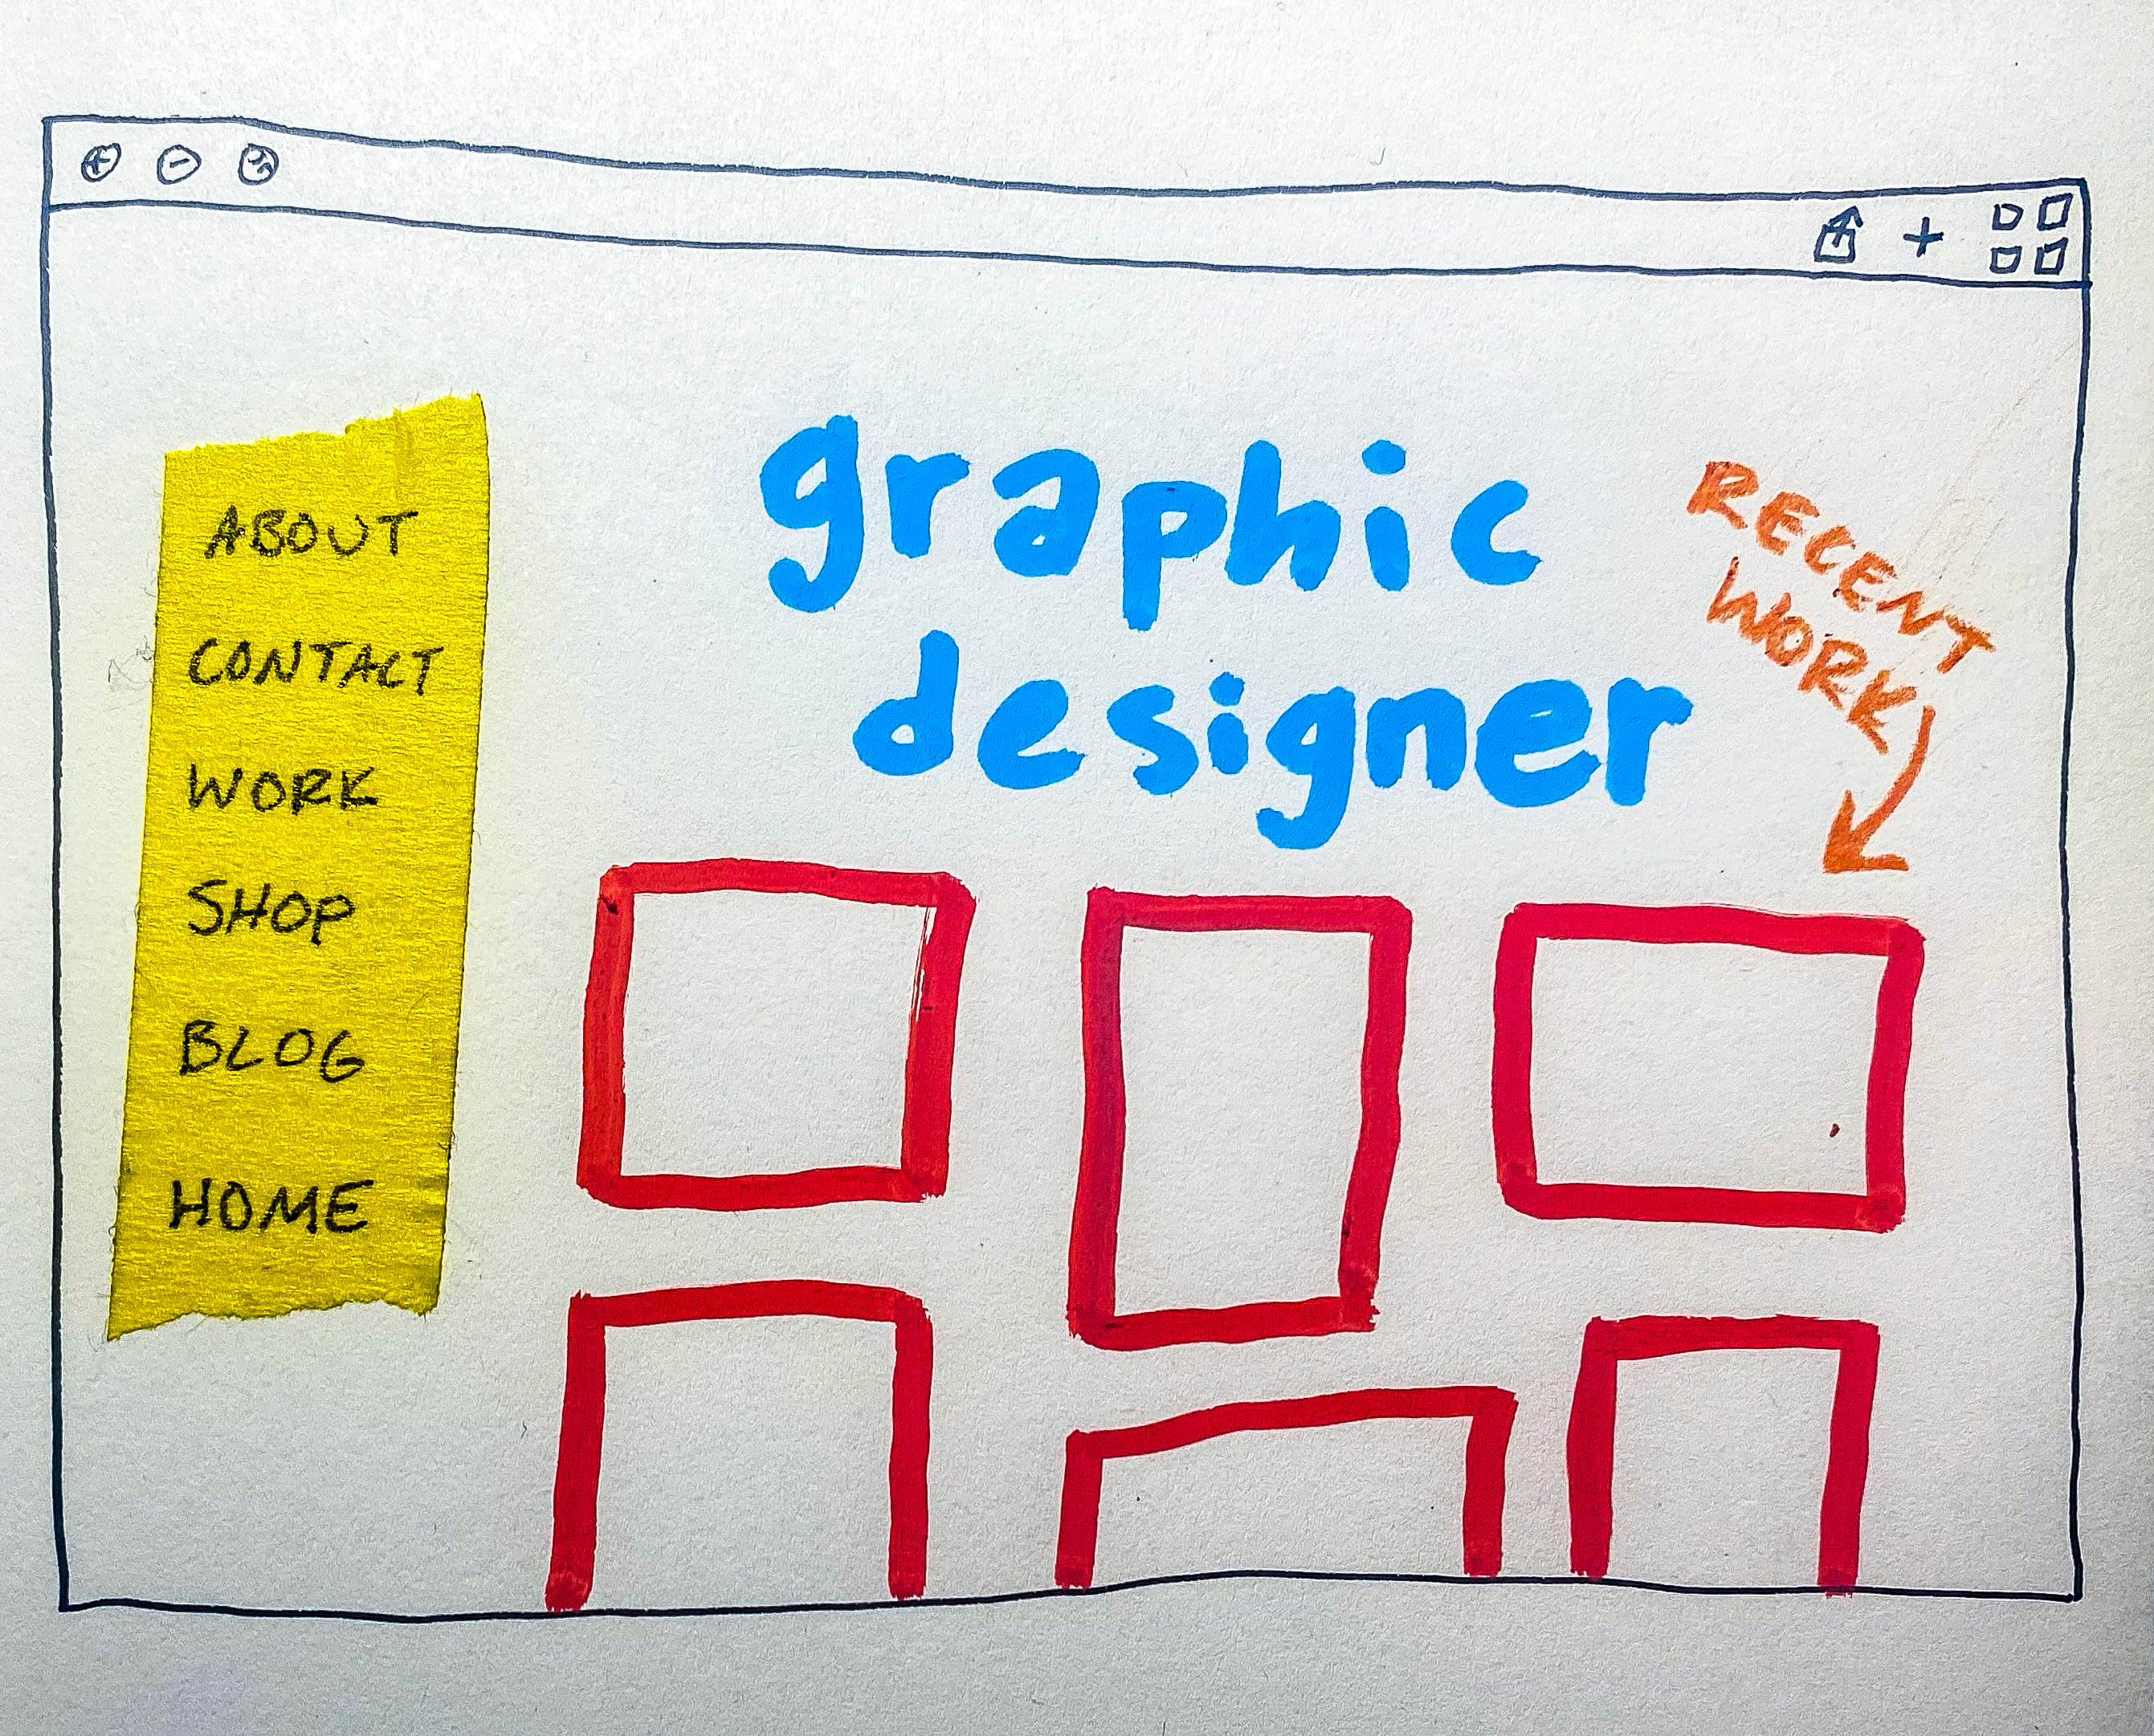 ABOUT
CONTACT
WORK
SHOP
BLOG
HOME
graphic
designer
RECENT
WORK